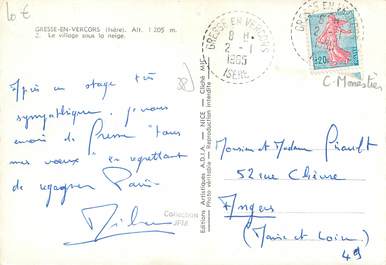 10 €
GRESSE-EN-VERCORS (Isère). Alt. 1 205 m.
2. Le village sous la neige.
38
Après un stage très
sympathique, je vous
envoie de Gresse "tous
mes vœux" en regrettant
de regagner Paris
Collection
JFM
Editions Artistiques A.D.I.A. — NICE — Cliché MIF
Photo véritable - Reproduction interdite
GRESSE-EN-VERCORS
8 H.
2 - 1
1965
ISÈRE
0,20
C. Monestier
Monsieur et Madame
52 rue Chèvre
Angers
(Maine et Loire)
49